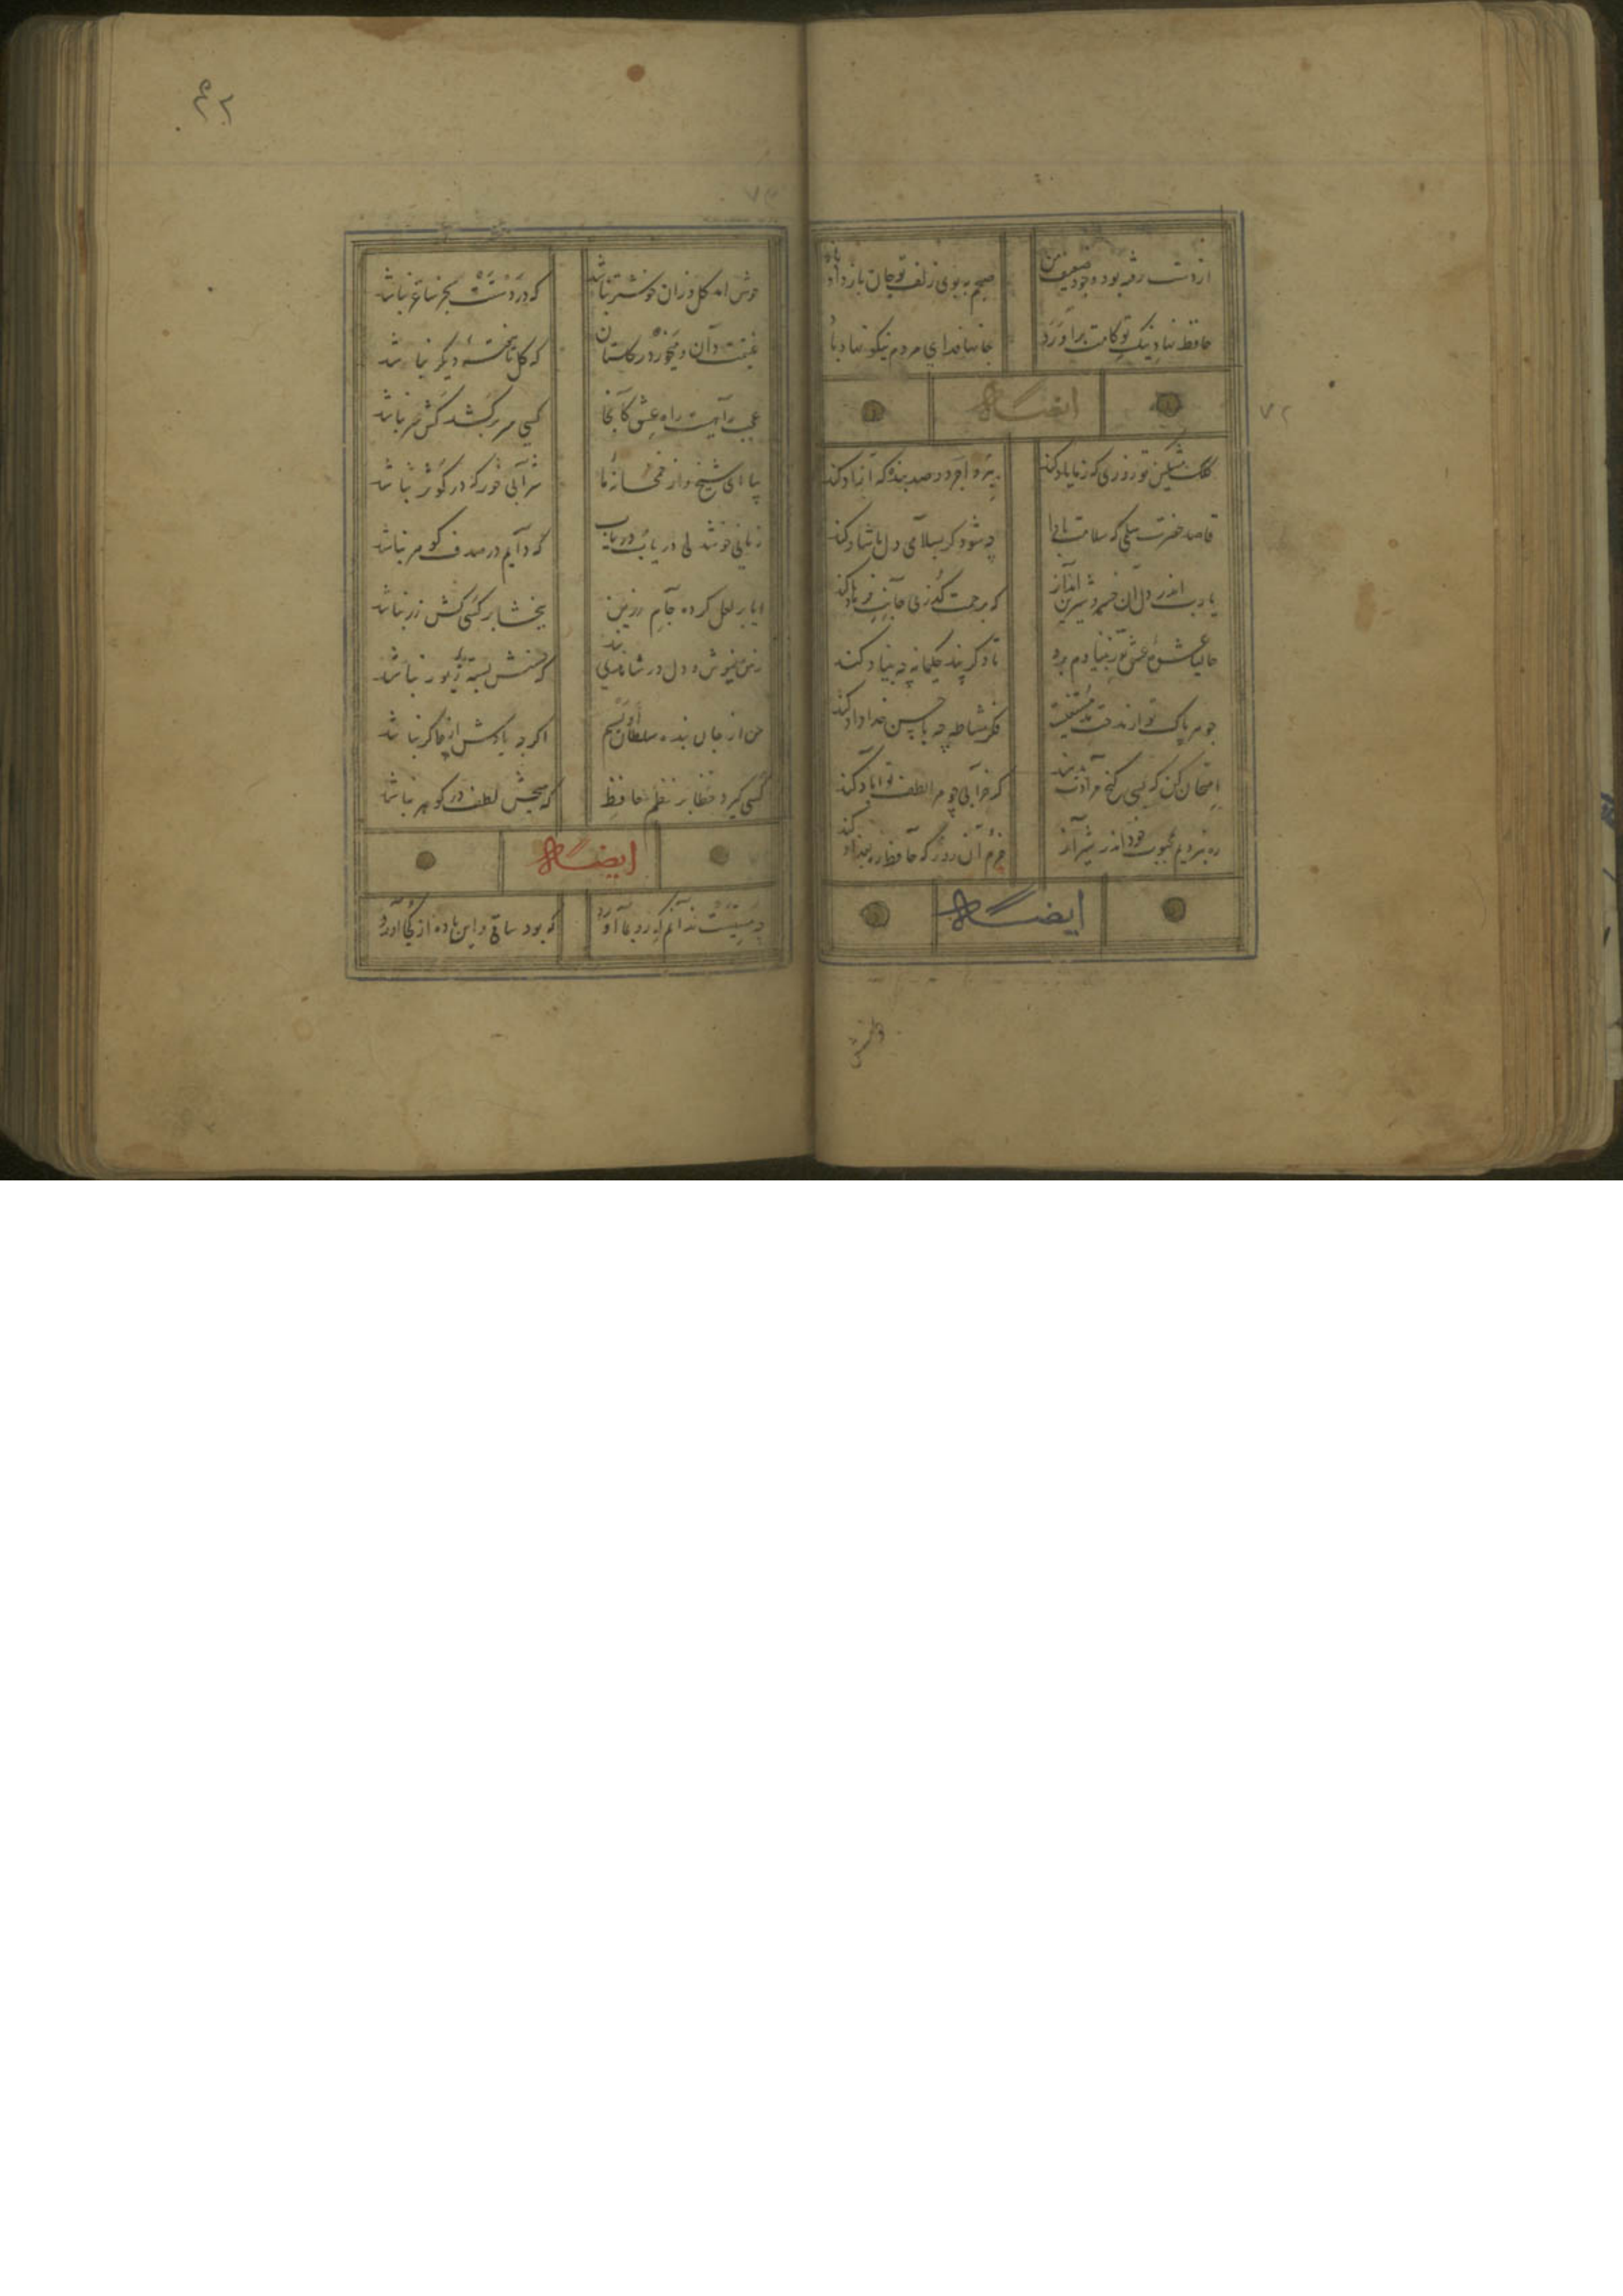 از دست رفته بود وجود ضعیف من صبحم به بوی زلف تو جان باز داد باد
حافظ نهاد نیک تو کامت برآورد جانها فدای مردم نیکو نهاد باد
ایضاً له
۷۲
کلک مشکین تو روزی که ز ما یاد کند ببرد اجر دو صد بنده که آزاد کند
قاصد حضرت سلمی که سلامت بادا چه شود گر بسلامی دل ما شاد کند
یا رب اندر دل آن خسرو شیرین انداز که برحمت گذری جانب فرهاد کند
حالیا عشوه عشق تو ز بنیادم برد تا دگر پند حکیمانه چه بنیاد کند
جوهر پاک تو از مدحت ما مستغنیست فکر مشاطه چه با حسن خداداد کند
امتحان کن که بسی گنج مرادت بدهند گر خرابی چو مرا لطف تو آباد کند
ره نبردیم بمقصود خود اندر شیراز خرم آن روز که حافظ ره بغداد کند
ایضاً له
خوش
خوش آمد گل وزان خوشتر نباشد که در دستت بجز ساغر نباشد
غنیمت دان و می خور در گلستان که گل تا هفته دیگر نباشد
عجب راهیست راه عشق کانجا کسی سر بر کشد کش سر نباشد
بیا ای شیخ و از خمخانه ما شرابی خور که در کوثر نباشد
زمانی خوشدلی دریاب دریاب که دایم در صدف گوهر نباشد
ایا پر لعل کرده جام زرین ببخشا بر کسی کش زر نباشد
ز من بنیوش و دل در شاهدی بند که حسنش بسته زیور نباشد
من از جان بنده سلطان اویسم اگر چه یادش از چاکر نباشد
کسی گیرد خطا بر نظم حافظ که هیچش لطف در گوهر نباشد
ایضاً له
چه مستیست ندانم که رو بما آورد که بود ساقی و این باده از کجا آورد